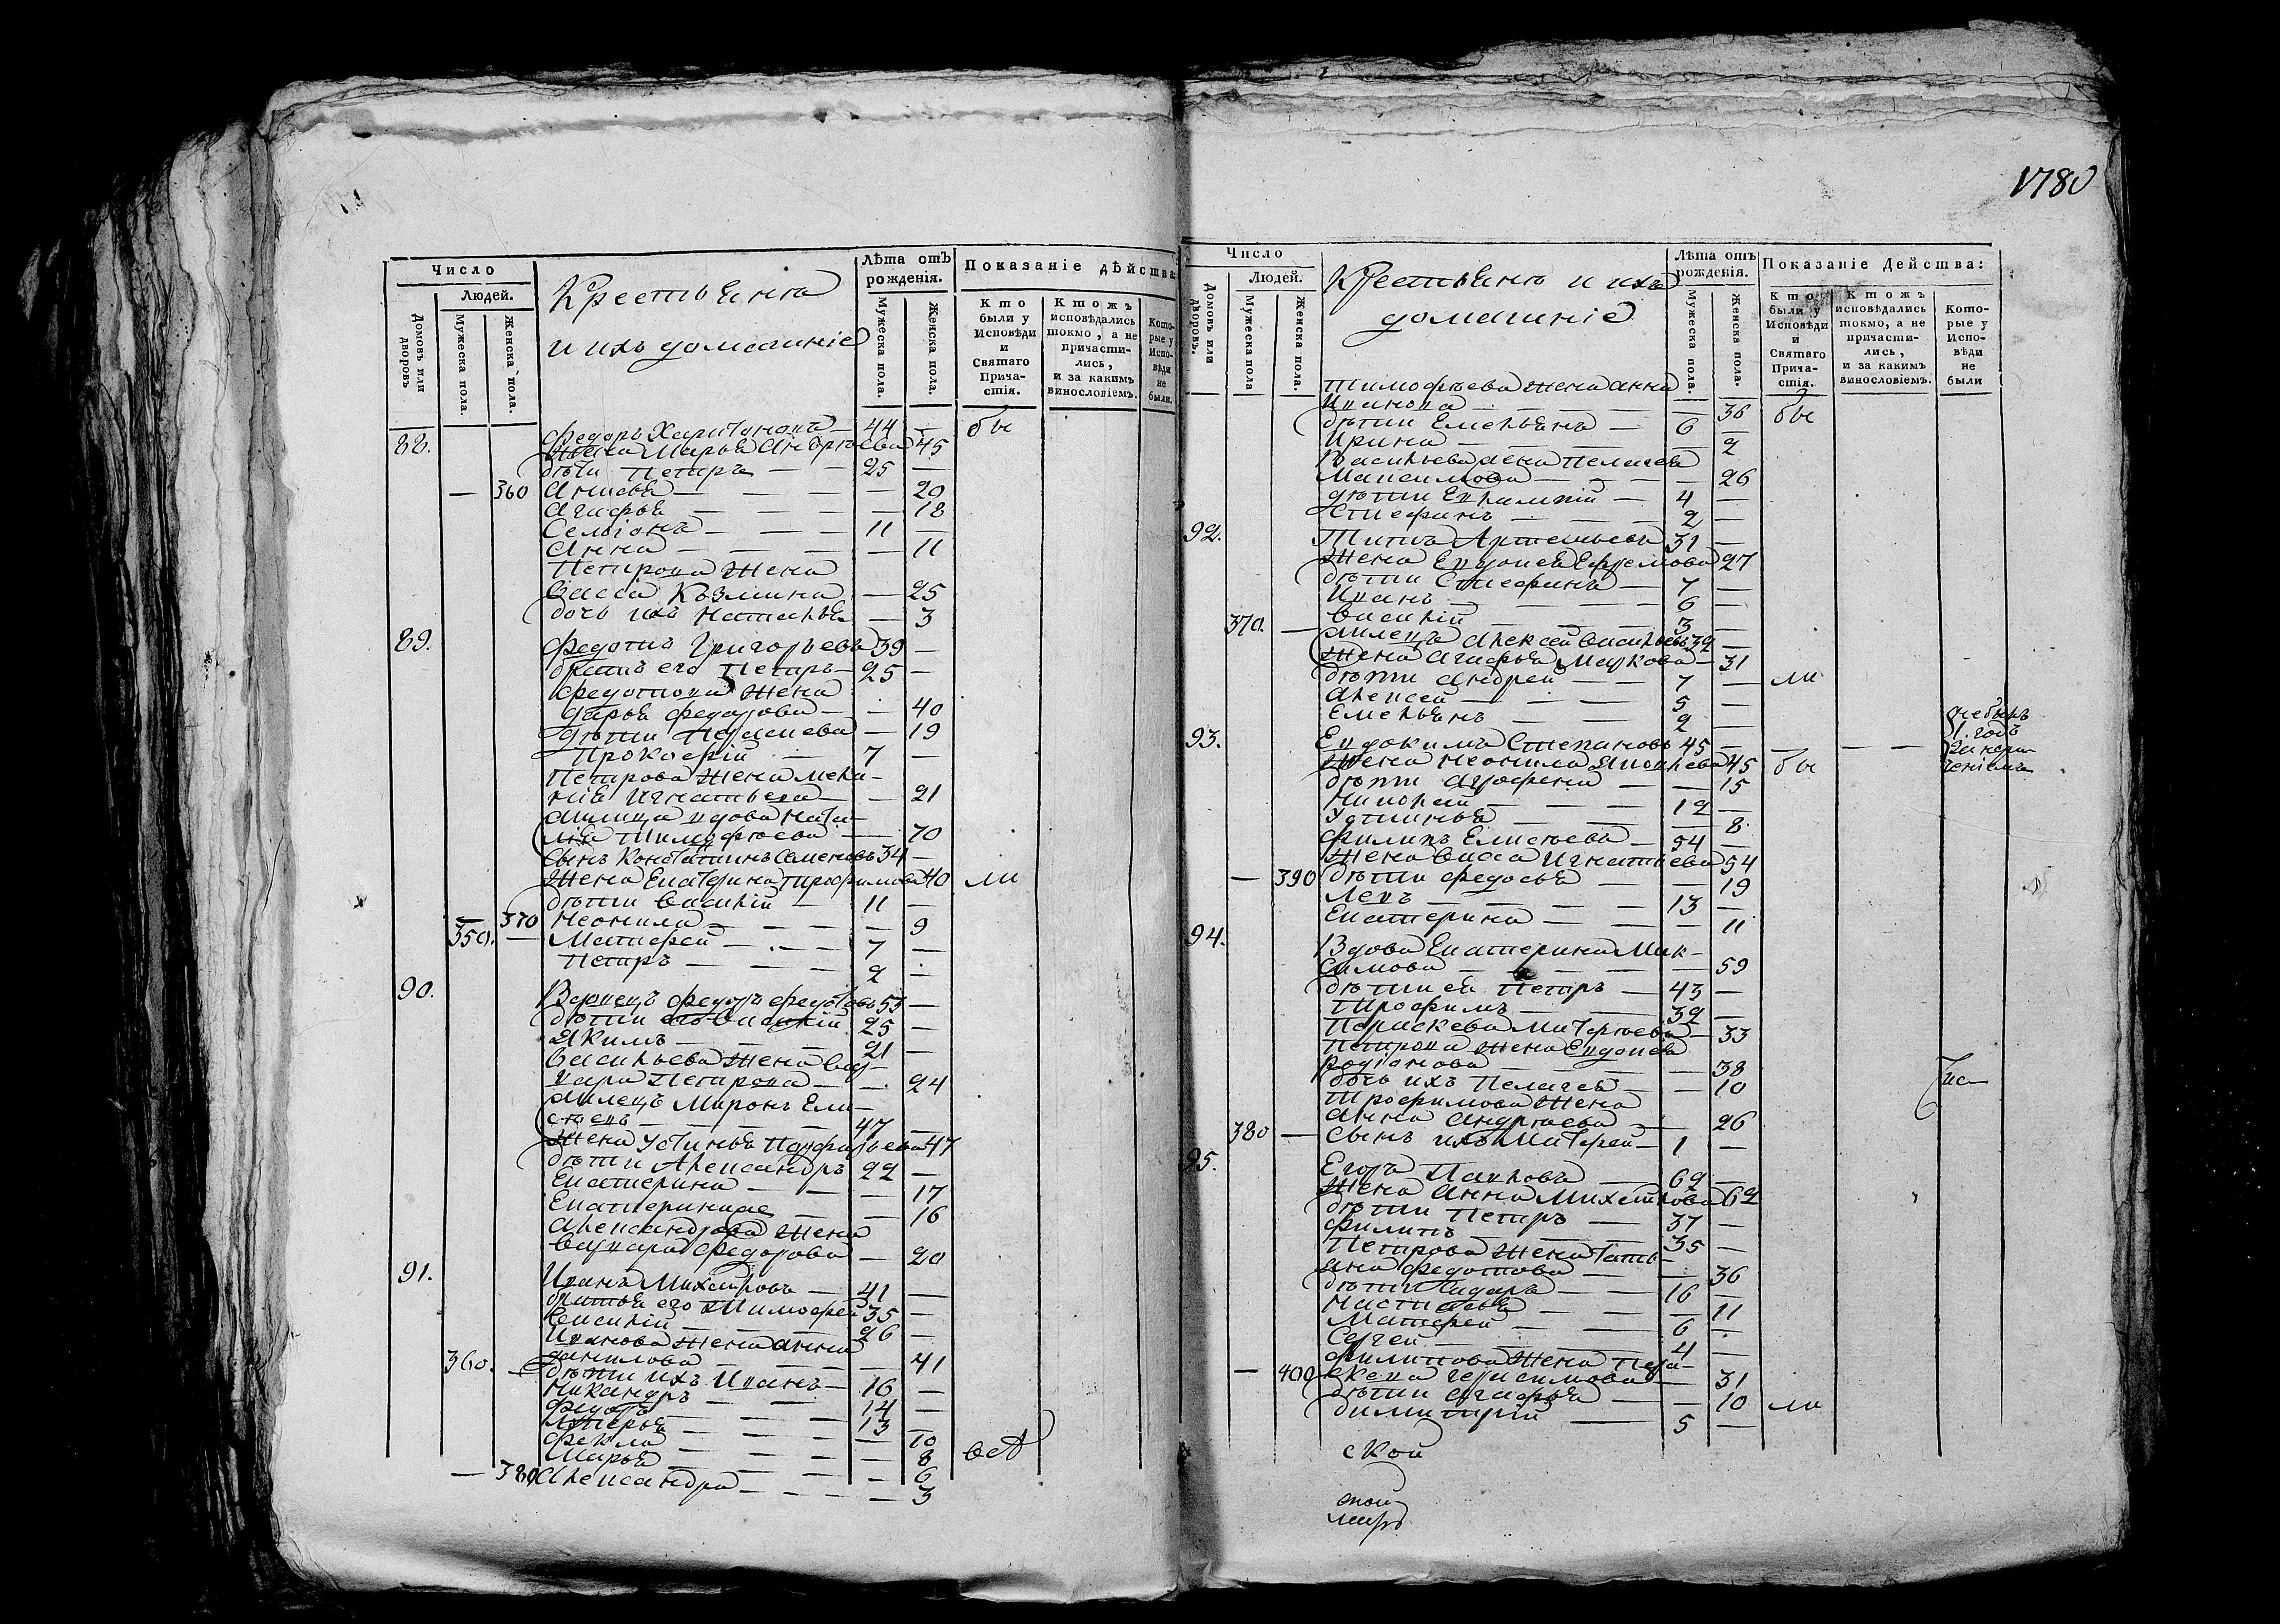 Число
Людей.
Домовъ или дворовъ
Мужеска пола.
Женска пола.
Крестьяня
и ихъ домашніе
Лѣта отъ рожденія.
Мужеска пола.
Женска пола.
Показаніе дѣйства:
Кто были у Исповѣди и Святаго Прича-стія.
Ктожъ исповѣдались токмо, а не причасти-лись, и за какимъ винословіемъ.
Кото-рые у Испо-вѣди не были.
88. Федоръ Харитоновъ — 44 — бы
Жена Марья Андрѣева 45
дѣти Петръ — — 25 —
— 360 Анисья — — — — 20
Агафья — — — — 18
Семіонъ — — — 11 —
Анна — — — — 11
Петрова Жена
Васса Козмина — 25
дочь ихъ Наталья — 3
89. Федотъ Григорьевъ 39 —
братъ его Петръ — 25 —
Федотова Жена
Дарья Федорова — — 40
дѣти — 19
Прокофій — 7 —
Петрова Жена Мела-
нія Игнатьева — — 21
вдова Ната-
лія Тимофѣева — — 70
сынъ Константинъ Семеновъ 34 —
Жена Екатерина Трофимова 40 ли
дѣти Василій — 11 —
— 370 Неонила — — — — 9
350. — Матфей — — — 7 —
Петръ — — — 2 —
90. Федоръ Федотовъ 53 —
дѣти его Василій 25 —
Якимъ — — — 21 —
Васильева Жена Вар-
вара Петрова — — 24
Миронъ Ели-
сѣевъ — — — — 47 —
Жена Устинья Панфилова 47
дѣти Александръ 22 —
Екатерина — — — 17
Екатерина же — — 16
Александрова Жена
Варвара Федорова — 20
91. Иванъ Михайловъ — 41 —
братья его Тимофей 35 —
Василій — — — — 26 —
Иванова Жена Анна
Данилова — — — — 41
360. — дѣти ихъ Иванъ — 16 —
Никандръ — — — 14 —
Федотъ — — — 13 —
— — — 10
Фекла — — — — 8 всѣ
Марья — — — — 6
— 380 Александра — — — — 3
1780
Число
Людей.
Домовъ или дворовъ.
Мужеска пола
Женска пола.
Крестьяня и ихъ
домашніе
Лѣта отъ рожденія.
Мужеска пола.
Женска пола.
Показаніе Действа:
Кто были у Исповѣди и Святаго Прича-стія.
Ктожъ исповѣдались токмо, а не причасти-лись, и за какимъ винословіемъ.
Кото-рые у Испо-вѣди не были
Тимофѣева Жена Анна
Иванова — — — — — 36 бы
дѣти Емельянъ — 6 —
Ирина — — — — 2
Васильева жена Пелагея
Максимова — — — — 26
дѣти — 4 —
Стефанъ — — — 2 —
92. Титъ Артемьевъ 31 —
Жена Евдокея Ефремова 27
дѣти Стефанъ — 7 —
Иванъ — — — — 6 —
370. — Василій — — — 3 —
Алексей Васильевъ 32 —
Жена Агафья Маркова — 31
дѣти Андрей — — 7 — ли
Алексей — — — 5 —
Емельянъ — — 2 —
93. Евдокимъ Степановъ 45 — — — — не былъ
1. годъ
Жена Неонила 45 бы
дѣти Агрофена — — 15
Николай — — — 12 —
Устинья — — — — 8
Филипъ Елисѣевъ — 54 —
Жена Васса Игнатиева 54
— 390 дѣти Федосья — — 19
Левъ — — — — 13 —
Екатерина — — — 11
94. Вдова Екатерина Мак-
симова — — — — — 59
дѣти ея Петръ — 43 —
Трофимъ — — — 32 —
Параскева Матфѣева — 33
Петрова Жена Евдокея
Родіонова — — — — 38
дочь ихъ Пелагея — — 10
Трофимова Жена
Анна Андрѣева — — 26
380 — сынъ ихъ Матфей — 1 —
95. Егоръ Павловъ — 62 —
Жена Анна Михайлова 62
дѣти Петръ — 37 —
Филипъ — — — 35 —
Петрова Жена Тать-
яна Федотова — — 36
дѣти Сидоръ — — 16 —
Настасья — — — 11
Матфей — — — 6 —
Сергей — — — 4 —
Филипова Жена Пара-
— 400 скева Герасимова — 31
дѣти Агафья — — 10 ли
Димитрій — — 5 —
ской